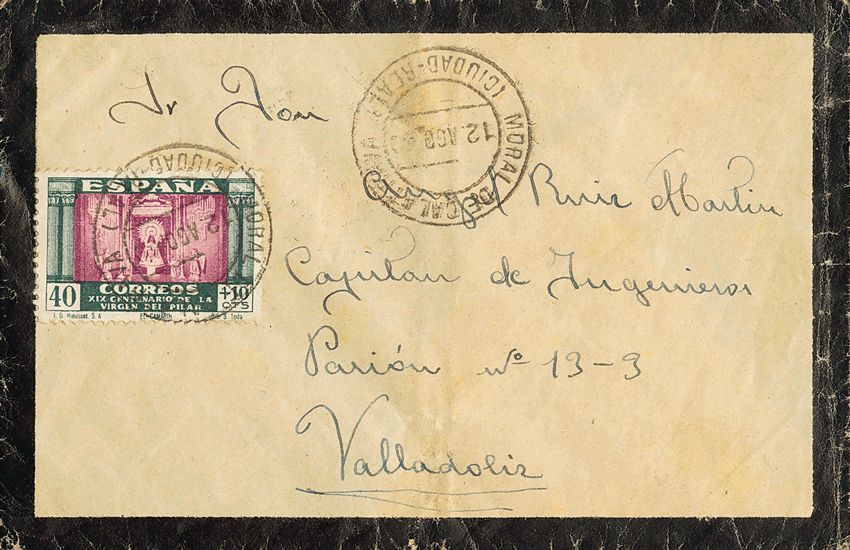 Sr Don
Ruiz Martin
Capitan de Ingenieros
Pasión nº 13-3
Valladolid
MORAL DE CALATRAVA
(CIUDAD-REAL)
12 AGO
ESPAÑA
CORREOS
40 +10 CTS
XIX CENTENARIO DE LA
VIRGEN DEL PILAR
EL CAMARIN
S. Toda
MORAL
(CIUDAD-
12 AGO